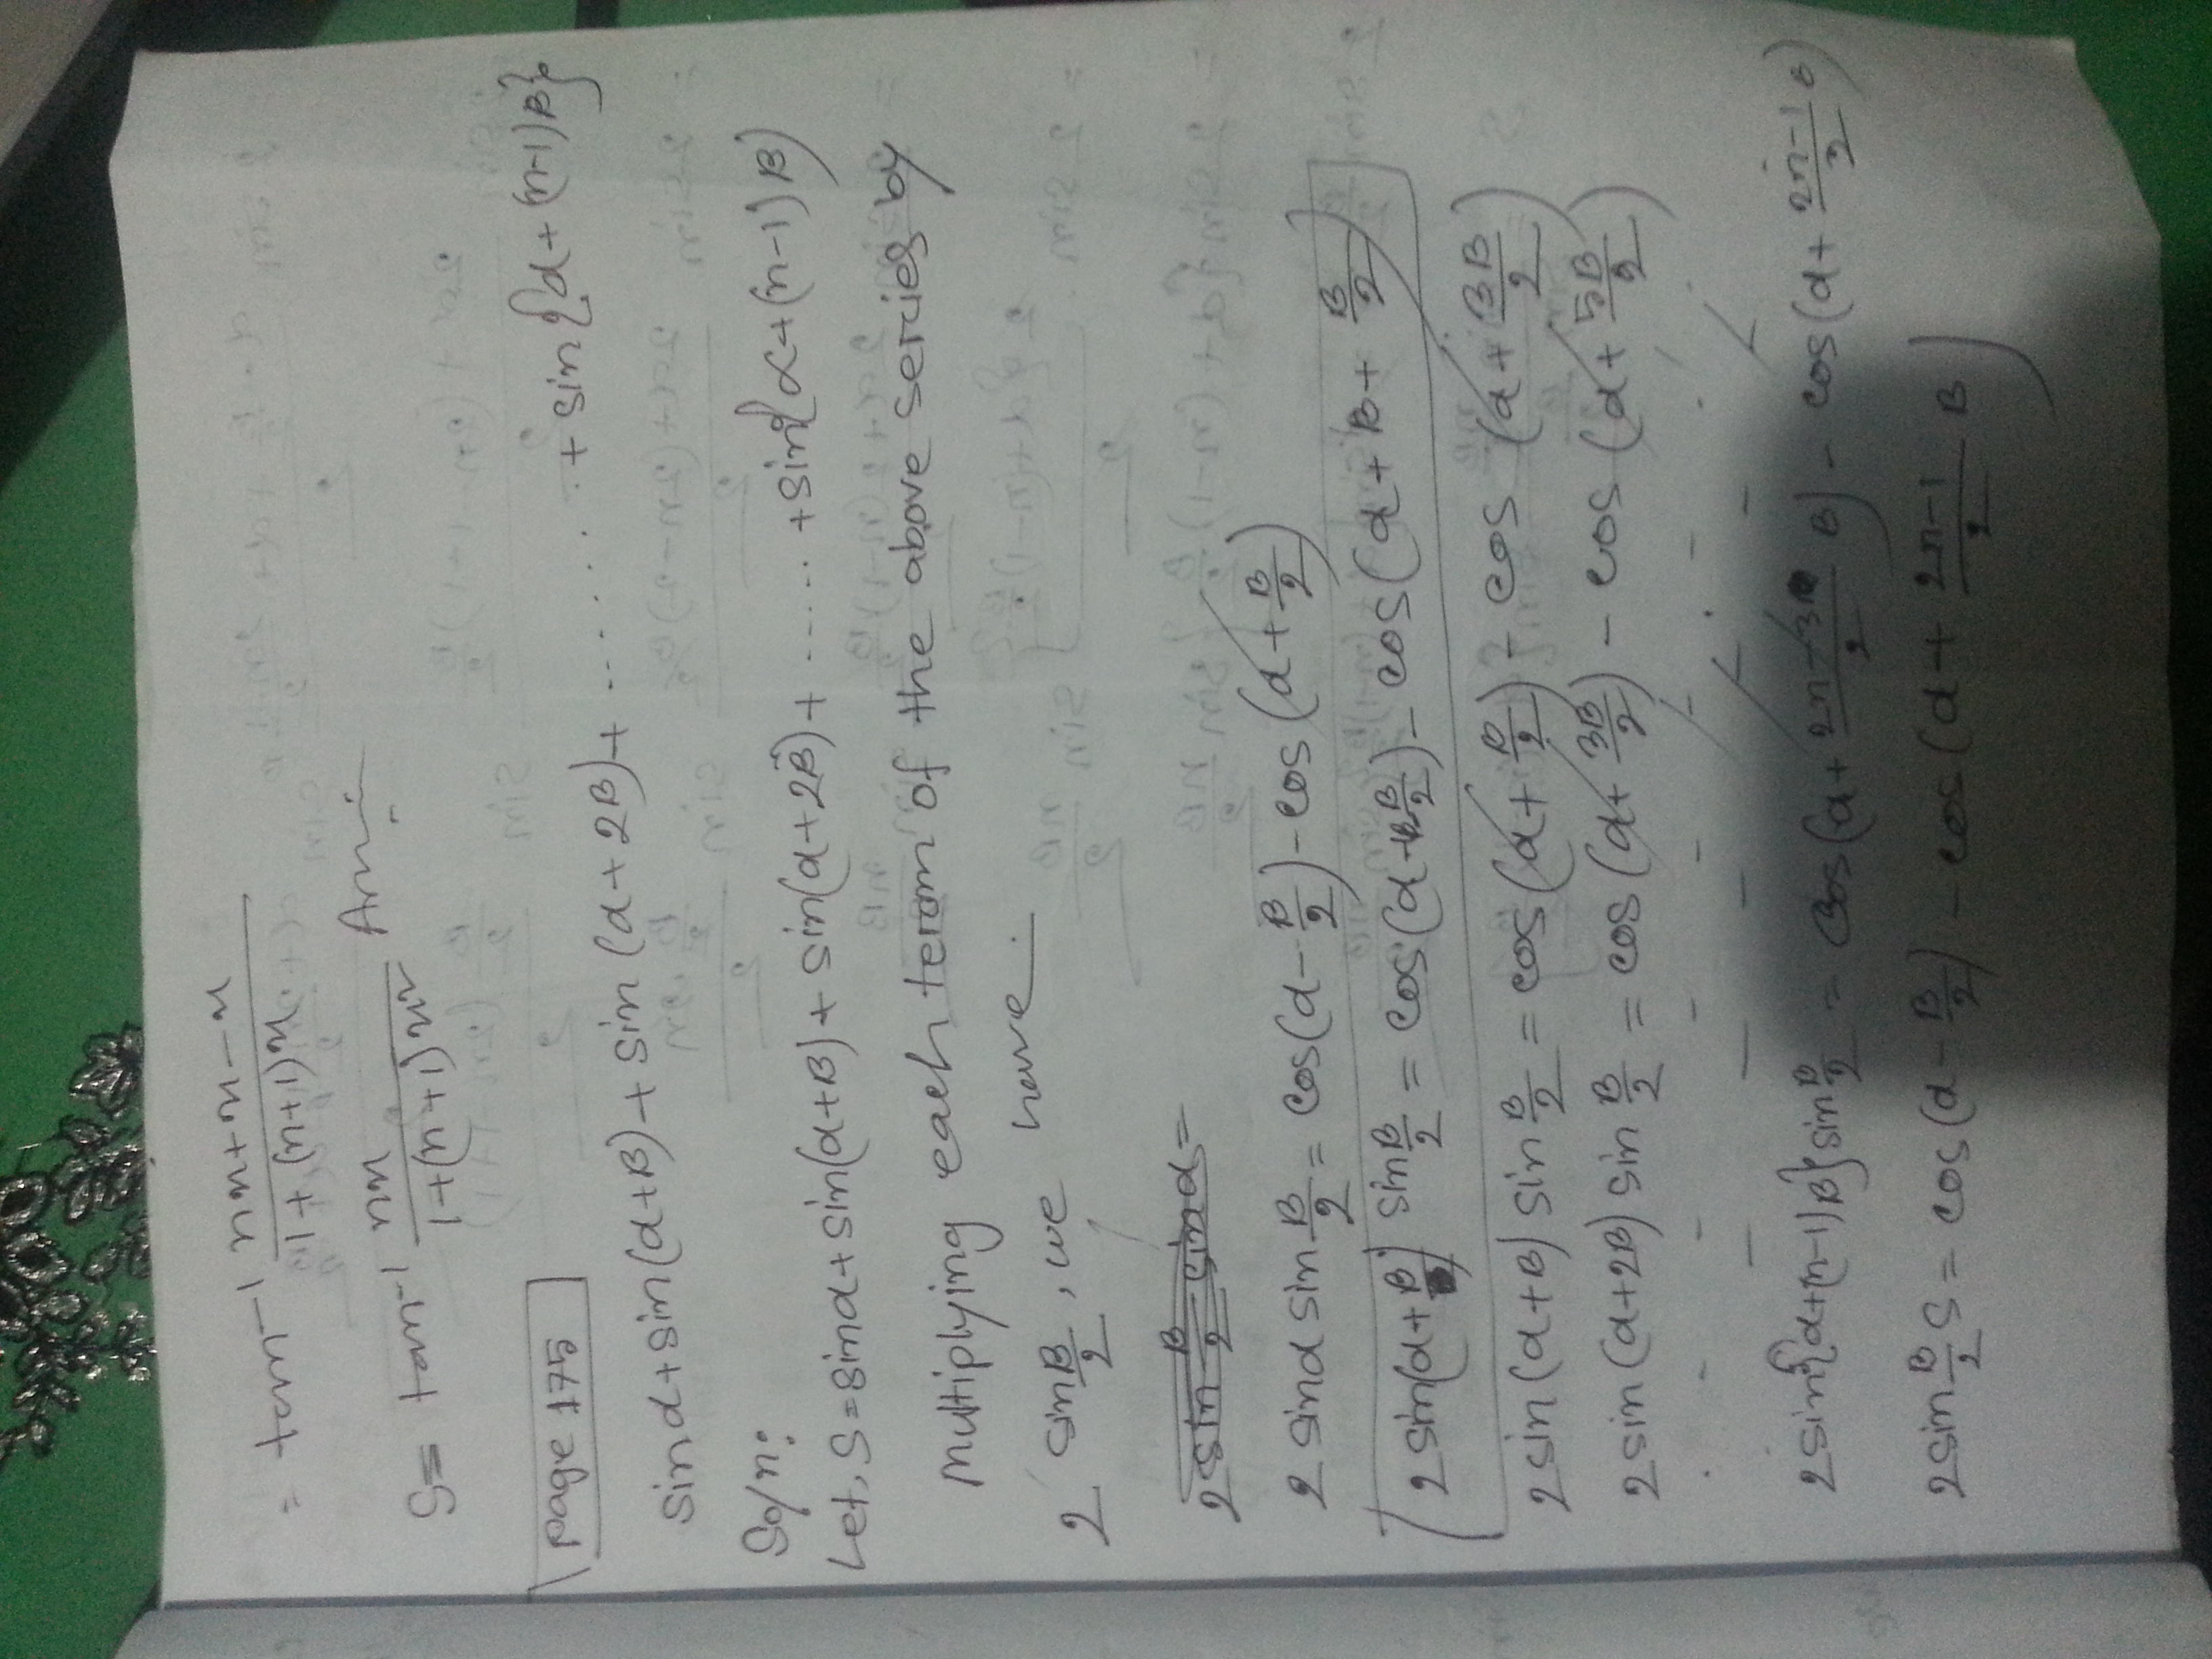 = tan⁻¹ (nx+x-x)/(1+(n+1)x·
S= tan⁻¹ nx/(1+(n+1)x²) Ans:
page 175
sinα+sin(α+β)+sin(α+2β)+.......+sin{α+(n-1)β}
Soln:
Let, S=sinα+sin(α+β)+sin(α+2β)+.....+sin{α+(n-1)β)
Multiplying each term of the above series by
2 sin β/2, we have.
2 sin β/2 sinα=
2 sinα sin β/2 = cos(α-β/2)-cos(α+β/2)
2 sin(α+β) sin β/2 = cos(α+β-β/2)-cos(α+β+β/2)
2 sin(α+β) sin β/2 = cos(α+β/2)-cos(α+3β/2)
2 sin(α+2β) sin β/2 = cos(α+3β/2)-cos(α+5β/2)
2 sin{α+(n-1)β} sin β/2 = cos(α+(2n-3)/2 β)-cos(α+(2n-1)/2 β)
2 sin β/2 S = cos(α-β/2)-cos(α+(2n-1)/2 β)